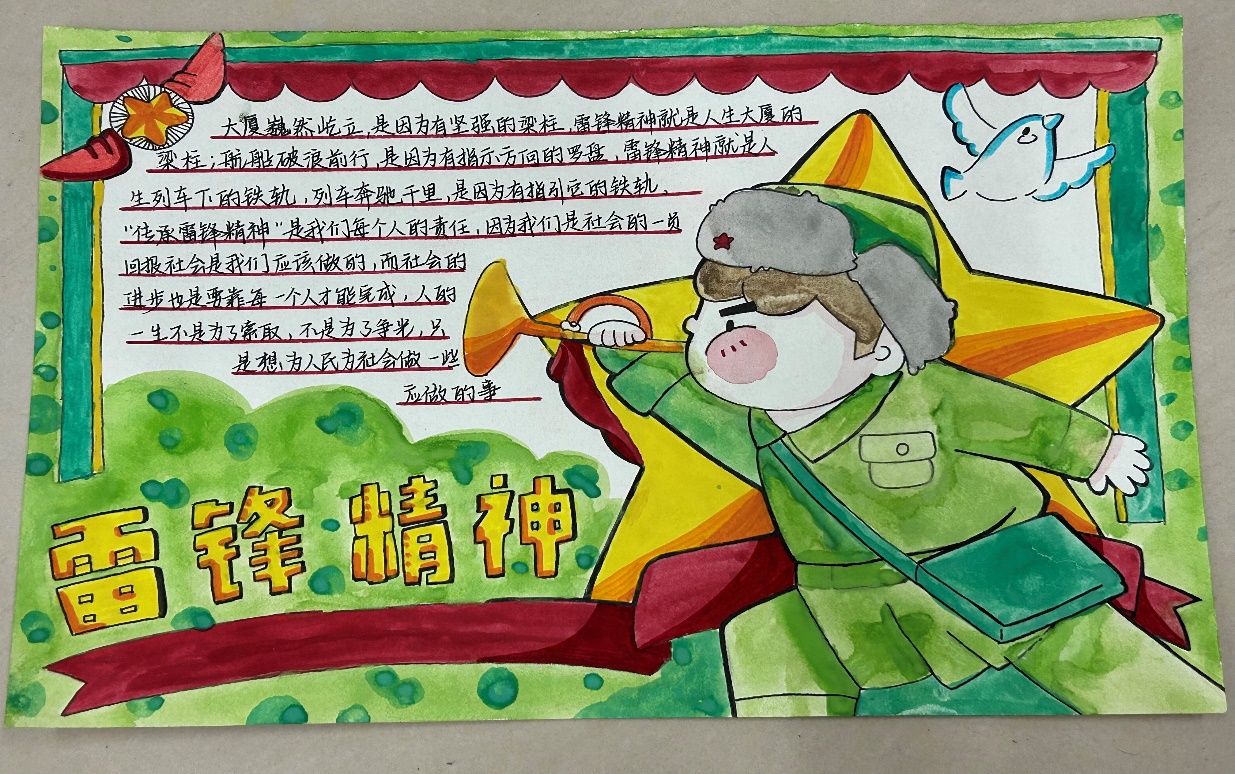 大厦巍然屹立,是因为有坚强的梁柱,雷锋精神就是人生大厦的
梁柱;航船破浪前行,是因为有指示方向的罗盘,雷锋精神就是人
生列车下的铁轨,列车奔驰千里,是因为有指引它的铁轨.
"传承雷锋精神"是我们每个人的责任,因为我们是社会的一员
回报社会是我们应该做的,而社会的
进步也是要靠每一个人才能完成,人的
一生不是为了索取,不是为了争光,只
是想为人民为社会做一些
应做的事
雷锋精神